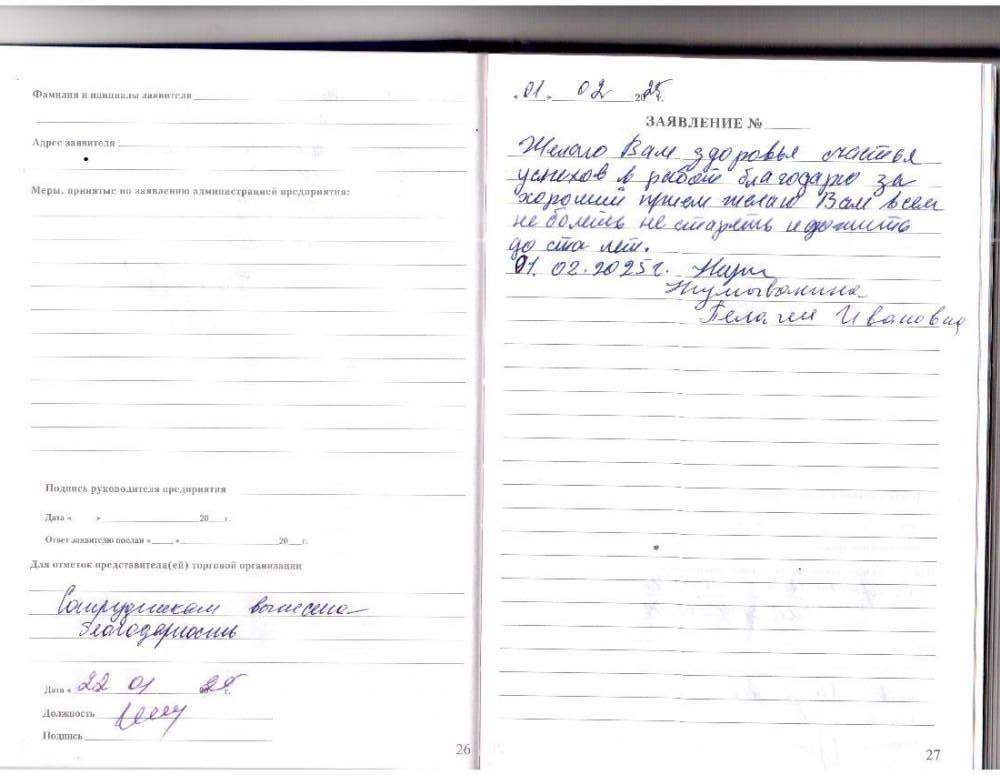 Фамилия и инициалы заявителя
Адрес заявителя
Меры, принятые по заявлению администрацией предприятия:
Подпись руководителя предприятия
Дата « » 20 г.
Ответ заявителю послан « » 20 г.
Для отметок представителя(ей) торговой организации
Сотрудникам вынесена
благодарность
Дата « 22 01 2025 г.
Должность
Подпись
26
« 01 » 02 2025 г.
ЗАЯВЛЕНИЕ №
Желаю Вам здоровья счастья
успехов в работ благодарю за
хороший прием желаю Вам всем
не болеть не стареть и дожить
до ста лет.
01. 02. 2025 г.
Пелагея Ивановна
27